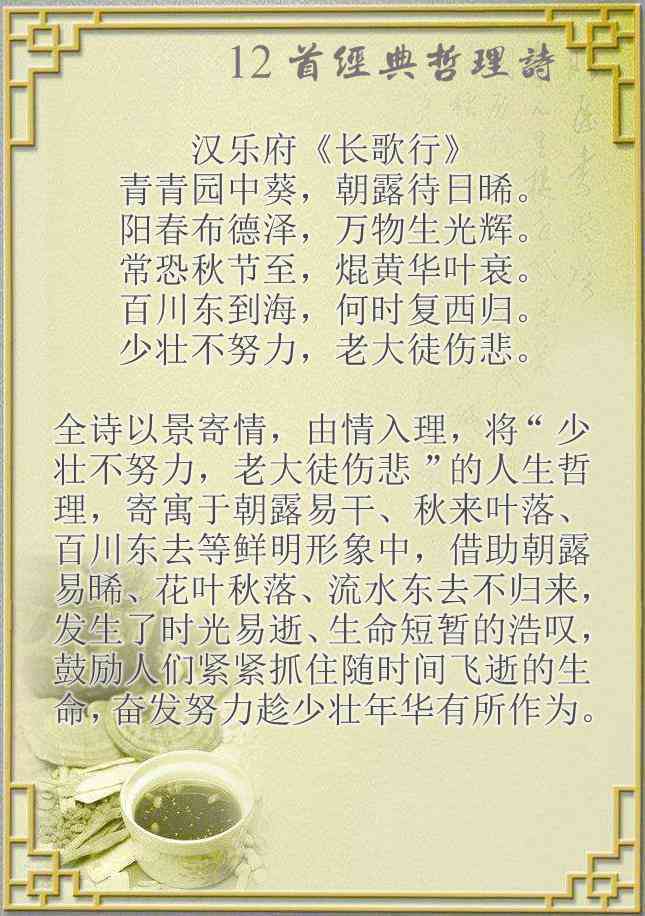 12首經典哲理詩
汉乐府《长歌行》
青青园中葵，朝露待日晞。
阳春布德泽，万物生光辉。
常恐秋节至，焜黄华叶衰。
百川东到海，何时复西归。
少壮不努力，老大徒伤悲。
全诗以景寄情，由情入理，将“少
壮不努力，老大徒伤悲”的人生哲
理，寄寓于朝露易干、秋来叶落、
百川东去等鲜明形象中，借助朝露
易晞、花叶秋落、流水东去不归来，
发生了时光易逝、生命短暂的浩叹，
鼓励人们紧紧抓住随时间飞逝的生
命，奋发努力趁少壮年华有所作为。